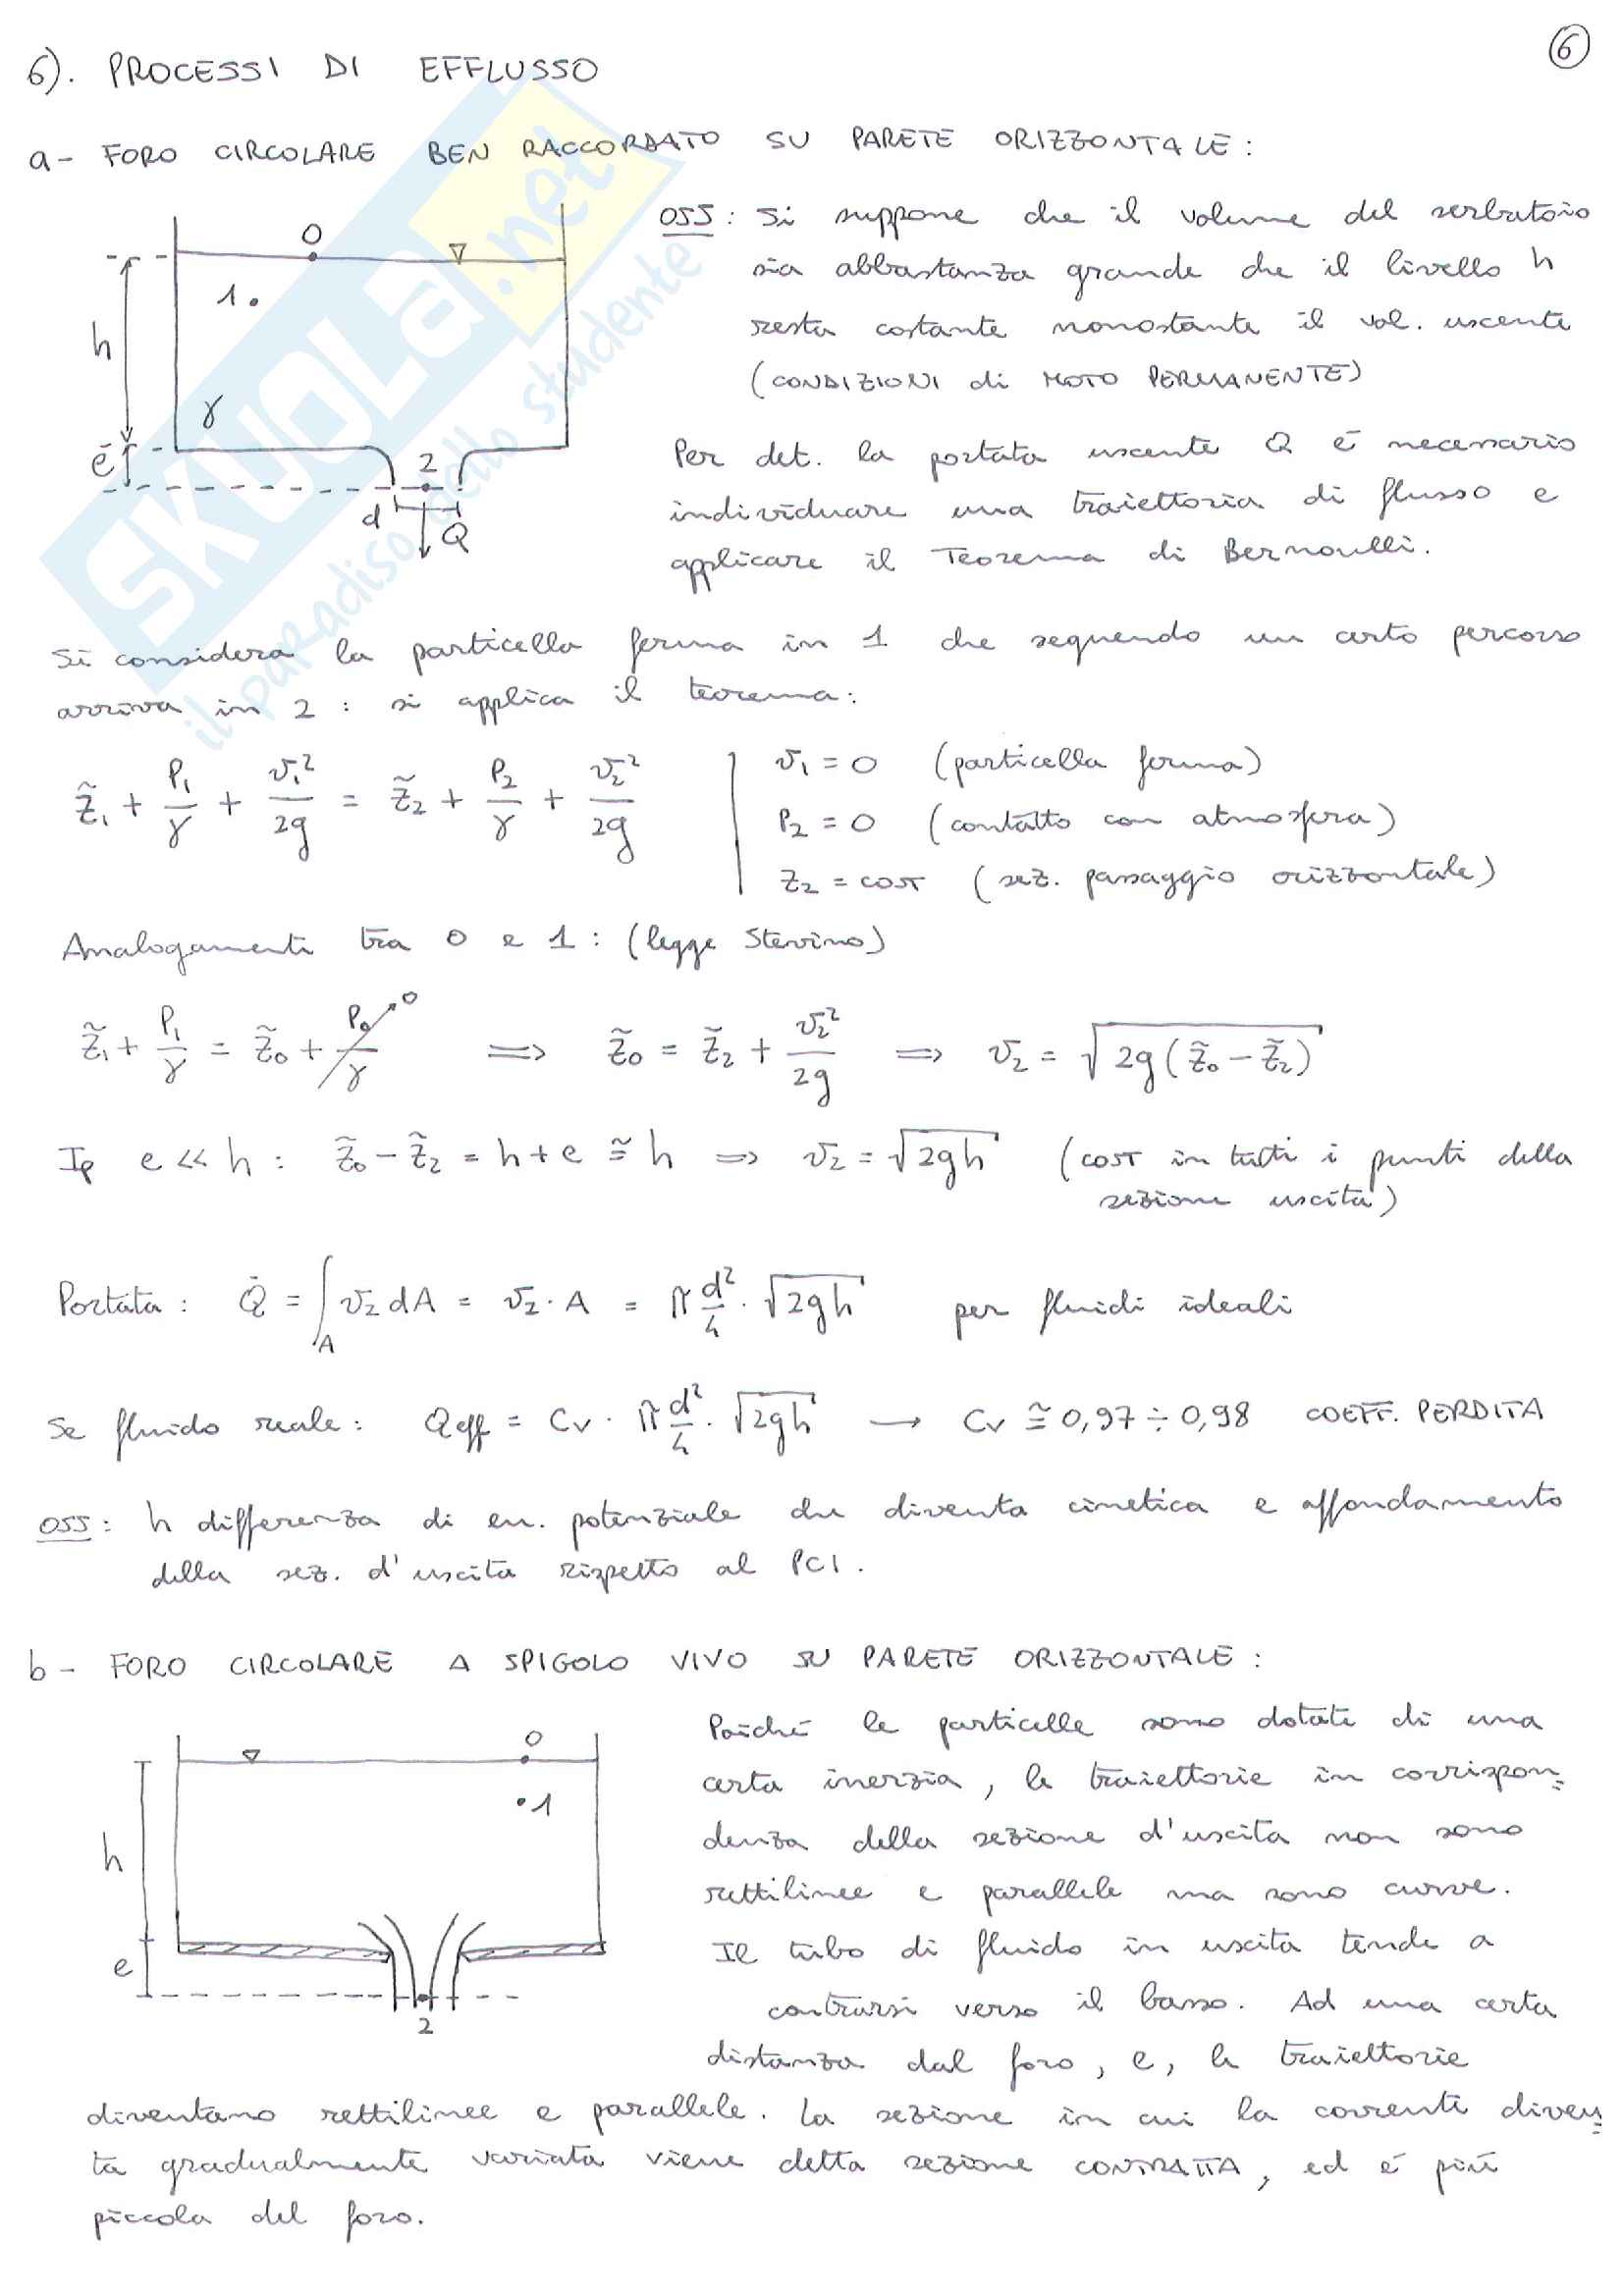 6
6). PROCESSI DI EFFLUSSO
a- FORO CIRCOLARE BEN RACCORDATO SU PARETE ORIZZONTALE :
OSS : Si suppone che il volume del serbatoio
sia abbastanza grande che il livello h
resta costante nonostante il vol. uscente
(CONDIZIONI di MOTO PERMANENTE)
Per det. la portata uscente Q é necessario
individuare una traiettoria di flusso e
applicare il Teorema di Bernoulli.
0
1
h
γ
e
2
d
Q
SKUOLA.net
il paradiso dello studente
Si considera la particella ferma in 1 che seguendo un certo percorso
arriva in 2 : si applica il teorema:
z̃₁ + P₁/γ + v₁²/2g = z̃₂ + P₂/γ + v₂²/2g
v₁ = 0 (particella ferma)
P₂ = 0 (contatto con atmosfera)
z₂ = cost (sez. passaggio orizzontale)
Analogamente tra 0 e 1 : (legge Stevino)
z̃₁ + P₁/γ = z̃₀ + P₀/γ → 0 ⟹ z̃₀ = z̃₂ + v₂²/2g ⟹ v₂ = √2g(z̃₀ - z̃₂)
Ip e << h : z̃₀ - z̃₂ = h + e ≅ h ⟹ v₂ = √2gh (cost in tutti i punti della
sezione uscita)
Portata : Q = ∫_A v₂ dA = v₂ · A = π d²/4 · √2gh per fluidi ideali
Se fluido reale : Qeff = Cv · π d²/4 · √2gh → Cv ≅ 0,97 ÷ 0,98 COEFF. PERDITA
OSS : h differenza di en. potenziale che diventa cinetica e affondamento
della sez. d'uscita rispetto al PCI.
b - FORO CIRCOLARE A SPIGOLO VIVO SU PARETE ORIZZONTALE :
0
1
h
e
2
Poiché le particelle sono dotate di una
certa inerzia, le traiettorie in corrispon=
denza della sezione d'uscita non sono
rettilinee e parallele ma sono curve.
Il tubo di fluido in uscita tende a
contrarsi verso il basso. Ad una certa
distanza dal foro, e, le traiettorie
diventano rettilinee e parallele. La sezione in cui la corrente diven=
ta gradualmente variata viene detta sezione CONTRATTA, ed é piú
piccola del foro.